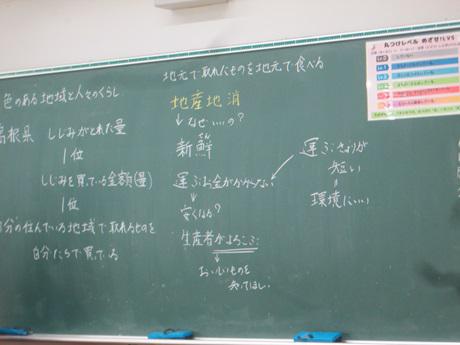 色のある地域と人々のくらし
島根県 しじみがとれた量
1位
しじみを買っている金額(量)
1位
自分の住んでいる地域で取れるものを
自分たちで買っている
地元で取れたものを地元で食べる
地産地消
↓なぜいいの?
新鮮
せん
運ぶお金がかからない
↓
安くなる?
生産者がよろこぶ
↓
おいしいものを
知ってほしい
運ぶきょりが
短い
環境にいい
丸つけレベル めざせ!LV5